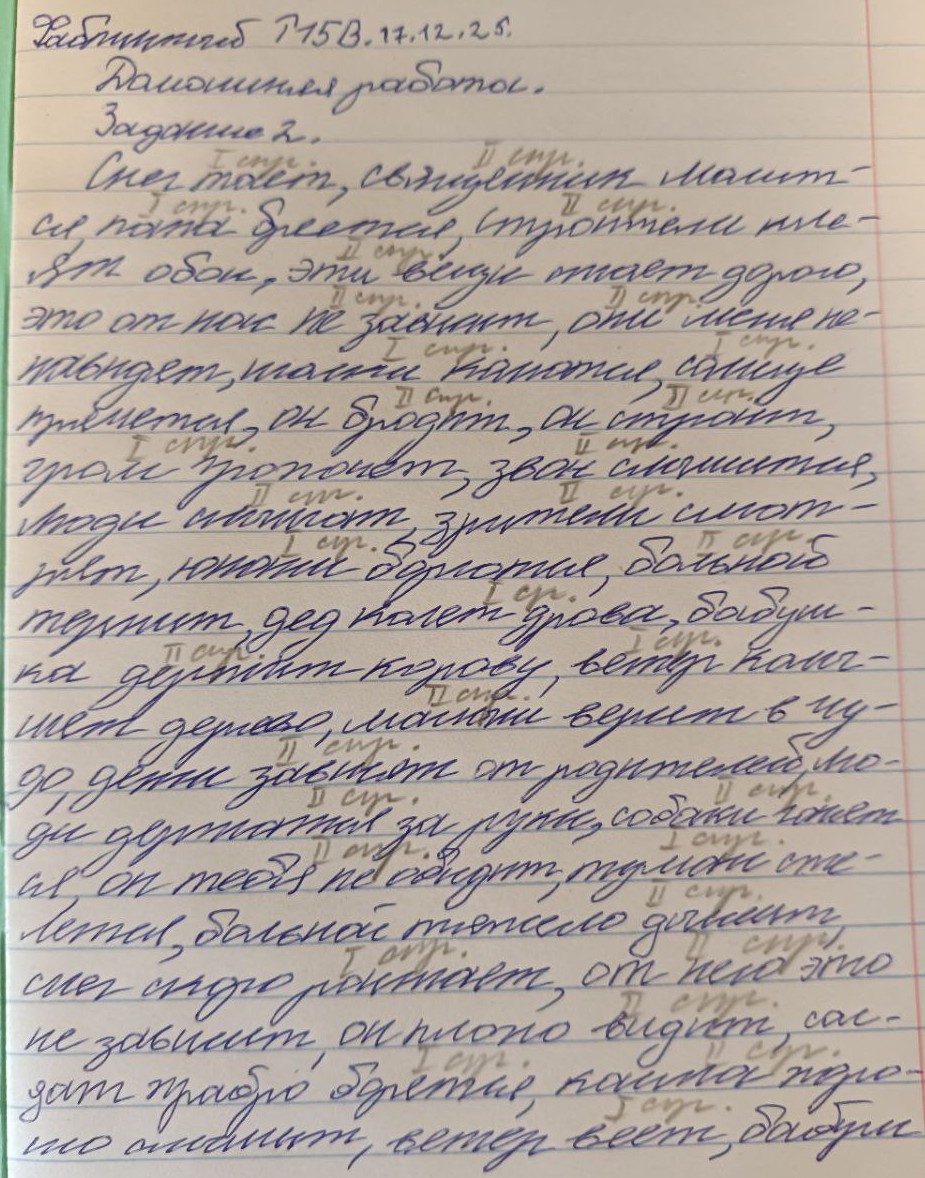 Т15В.17.12.25.
Домашняя работа.
Задание 2.
I спр. II спр.
Снег тает, священник молит-
I спр. II спр.
ся, папа бреется, строители кле-
II спр.
ят обои, эти вещи стоят дорого,
II спр. II спр.
это от нас не зависит, они меня не-
I спр. I спр.
навидят, колются, солнце
II спр. II спр.
греется, он бродит, он строит,
I спр. II спр.
гром грохочет, звон слышится,
II спр. II спр.
люди слышат, зрители смот-
I спр. II спр.
рят, юноши борются, больной
I спр.
терпит, дед колет дрова, бабуш-
II спр. I спр.
ка держит корову, ветер колы-
II спр.
шет дерево, малыши верит в чу-
II спр.
до, дети зависят от родителей, лю-
II спр. II спр.
ди держатся за руки, собаки гонят
II спр. I спр.
ся, он тебя не обидит, туман сте-
II спр.
лется, больной тяжело дышит,
I спр. II спр.
снег скоро растает, от него это
II спр.
не зависит, он плохо видит, сол-
I спр. II спр.
дат храбро борется, хоро-
I спр.
шо слышит, ветер веет, бабуш